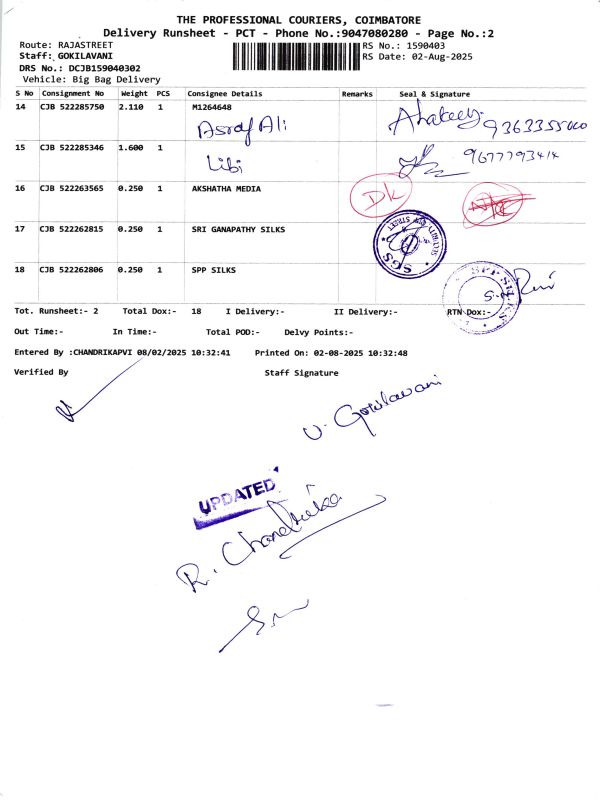 THE PROFESSIONAL COURIERS, COIMBATORE
Delivery Runsheet - PCT - Phone No.:9047080280 - Page No.:2
Route: RAJASTREET
RS No.: 1590403
Staff: GOKILAVANI
RS Date: 02-Aug-2025
DRS No.: DCJB159040302
Vehicle: Big Bag Delivery
S No Consignment No Weight PCS Consignee Details Remarks Seal & Signature
14 CJB 522285750 2.110 1 M1264648
Asraf Ali
15 CJB 522285346 1.600 1
Libi 9677793414
16 CJB 522263565 0.250 1 AKSHATHA MEDIA
DK
17 CJB 522262815 0.250 1 SRI GANAPATHY SILKS
SGS
18 CJB 522262806 0.250 1 SPP SILKS
SPP SILKS
Tot. Runsheet:- 2 Total Dox:- 18 I Delivery:- II Delivery:- RTN Dox:-
Out Time:- In Time:- Total POD:- Delvy Points:-
Entered By :CHANDRIKAPVI 08/02/2025 10:32:41 Printed On: 02-08-2025 10:32:48
Verified By Staff Signature
U. Gokilavani
UPDATED
R. Chandrika